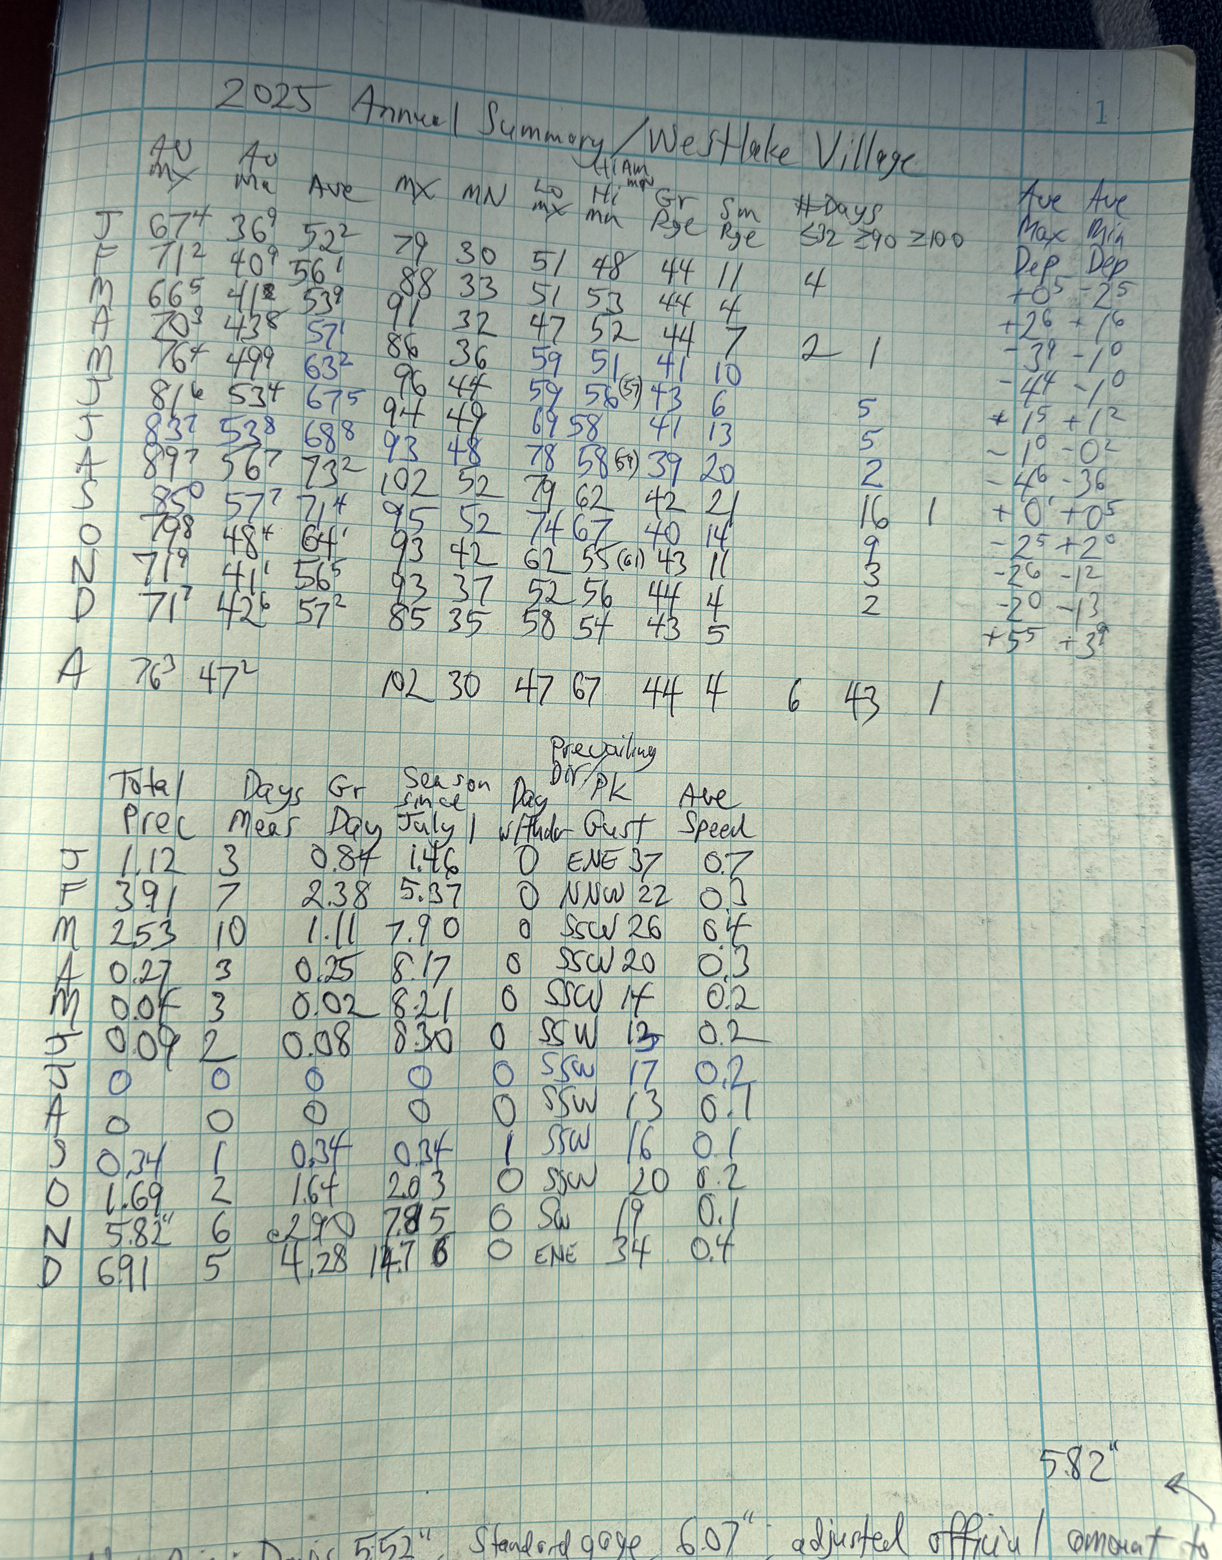 1
2025 Annual Summary/Westlake Village
Av Av HiAm
mx Mn Ave MX MN Lo mx Hi mn mn Gr Rge Sm Rge # Days Ave Ave
≤32 ≥90 ≥100 Max Min
Dep Dep
J 67⁴ 36⁹ 52² 79 30 51 48 44 11 4 +0⁵ -2⁵
F 71² 40⁹ 56¹ 88 33 51 53 44 4 +2⁶ +1⁶
M 66⁵ 41² 53⁹ 91 32 47 52 44 7 2 1 -3⁹ -1⁰
A 70³ 43⁸ 57¹ 86 36 59 51 41 10 -4⁴ -1⁰
M 76⁴ 49⁹ 63² 96 44 59 56(59) 43 6 5 +1⁵ +1²
J 81⁶ 53⁴ 67⁵ 94 49 69 58 41 13 5 -1⁰ -0²
J 83⁷ 53⁸ 68⁸ 93 48 78 58(59) 39 20 2 -4⁶ -3⁶
A 89⁷ 56⁷ 73² 102 52 79 62 42 21 16 1 +0¹ +0⁵
S 85⁰ 57⁷ 71⁴ 95 52 74 67 40 14 9 -2⁵ +2⁰
O 79⁸ 48⁴ 64¹ 93 42 62 55(61) 43 11 3 -2⁶ -1²
N 71⁹ 41¹ 56⁵ 93 37 52 56 44 4 2 -2⁰ -1³
D 71⁷ 42⁶ 57² 85 35 58 54 43 5 +5⁵ +3⁹
A 76³ 47² 102 30 47 67 44 4 6 43 1
Prevailing
Total Days Gr Season Dir/PK Ave
Prec Meas Day since July 1 Day w/thdr Gust Speed
J 1.12 3 0.84 1.46 0 ENE 37 0.7
F 3.91 7 2.38 5.37 0 NNW 22 0.3
M 2.53 10 1.11 7.90 0 SSW 26 0.4
A 0.27 3 0.25 8.17 0 SSW 20 0.3
M 0.04 3 0.02 8.21 0 SSW 14 0.2
J 0.09 2 0.08 8.30 0 SSW 13 0.2
J 0 0 0 0 0 SSW 17 0.2
A 0 0 0 0 0 SSW 13 0.1
S 0.34 1 0.34 0.34 1 SSW 16 0.1
O 1.69 2 1.64 2.03 0 SSW 20 0.2
N 5.82" 6 2.90 7.85 0 SW 19 0.1
D 6.91 5 4.28 14.76 0 ENE 34 0.4
5.82"
5.52", Standard gage, 6.07"; adjusted official amount to